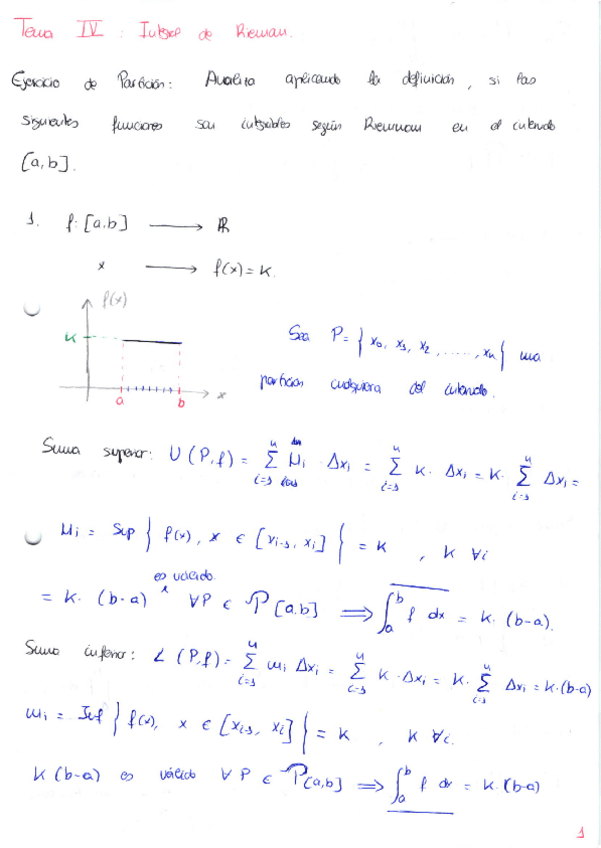 Tema IV : Integral de Rieman.
Ejercicio de Partición: Analiza aplicando la definición, si las
siguientes funciones son integrables según Riemman en el intervalo
[a,b].
1. f: [a,b] ⟶ ℝ
x ⟶ f(x) = K.
f(x)
K
a b x
Sea P = { x₀, x₁, x₂, ....., xₙ } una
partición cualquiera del intervalo.
Suma superior: U (P,f) = ∑ᵢ₌₁ⁿ Mᵢ · Δxᵢ = ∑ᵢ₌₁ⁿ K · Δxᵢ = K · ∑ᵢ₌₁ⁿ Δxᵢ =
Mᵢ = Sup { f(x), x ∈ [xᵢ₋₁, xᵢ] } = K , K ∀i
es válido
= K · (b-a) ∀P ∈ 𝒫[a,b] ⟹ ∫ₐᵇ f dx = K · (b-a).
Suma inferior: L (P,f) = ∑ᵢ₌₁ⁿ mᵢ Δxᵢ = ∑ᵢ₌₁ⁿ K · Δxᵢ = K · ∑ᵢ₌₁ⁿ Δxᵢ = K·(b-a)
mᵢ = Inf { f(x), x ∈ [xᵢ₋₁, xᵢ] } = K , K ∀i.
K (b-a) es válido ∀ P ∈ 𝒫[a,b] ⟹ ∫ₐᵇ f dx = K · (b-a)
1